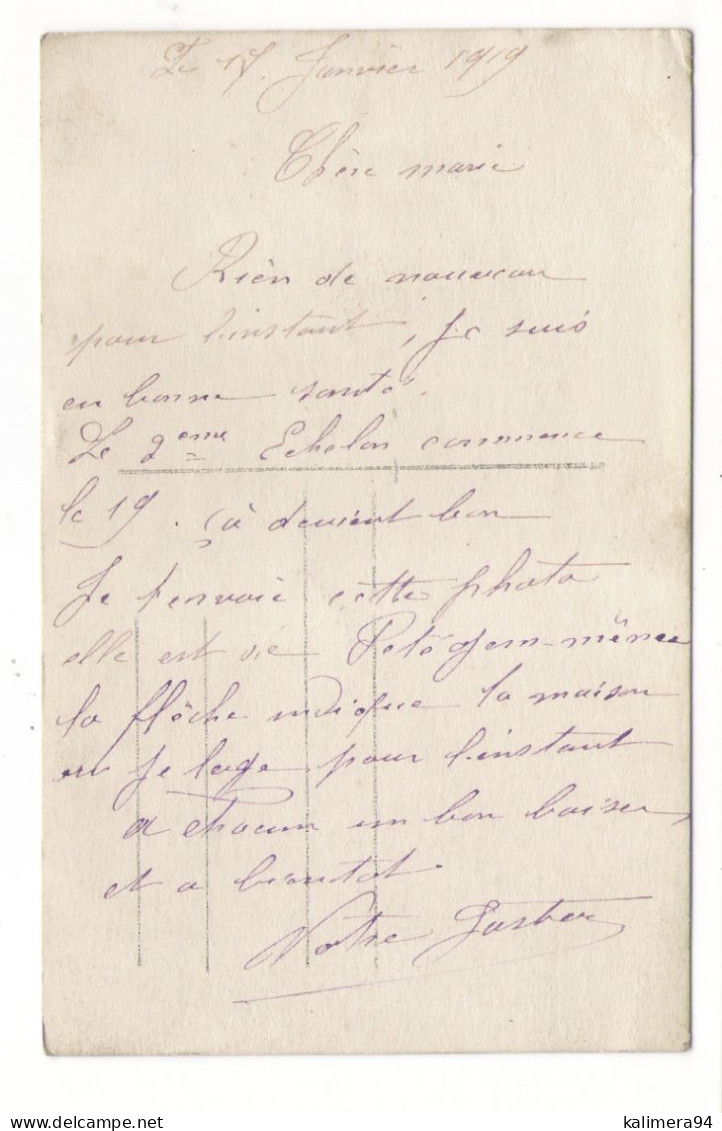 Le 17. Janvier 1919
Chère marie
Rien de nouveau
pour l'instant, Je suis
en bonne santé.
Le 2eme Echelon commence
le 19. ça devient bon
Je t'envoie cette photo
elle est de Petegem-même
la flêche indique la maison
ou Je loge pour l'instant
a chacun un bon baiser,
et a bientot.
Votre
kalimera94